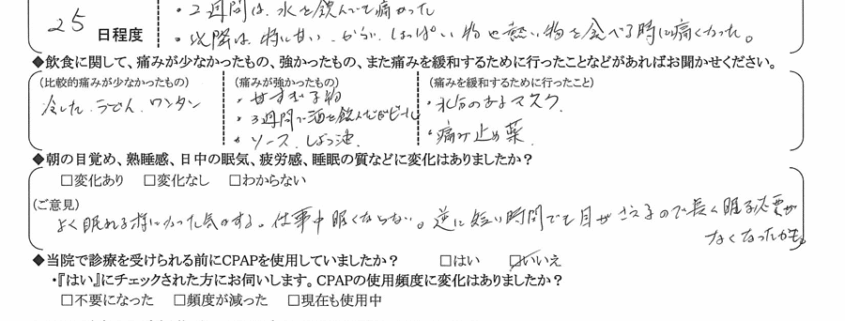 ・2週間は、水を飲んでも痛かった
25 日程度
・以降は、特に甘い、からい、しょっぱい物や熱い物を食べる時に痛くなった。
◆飲食に関して、痛みが少なかったもの、強かったもの、また痛みを緩和するために行ったことなどがあればお聞かせください。
(比較的痛みが少なかったもの) (痛みが強かったもの) (痛みを緩和するために行ったこと)
冷した、うどん、ワンタン ・甘すぎる物 ・氷石のおマスク、
・3週間で酒を飲んだがビール
・ソース、しょう油 ・痛み止め薬、
◆朝の目覚め、熟睡感、日中の眠気、疲労感、睡眠の質などに変化はありましたか?
□変化あり □変化なし □わからない
(ご意見)
よく眠れる様になった気がする。仕事中眠くならない。逆に短い時間でも目がさえるので長く眠る必要が
なくなったかも。
◆当院で診療を受けられる前にCPAPを使用していましたか? □はい ☑いいえ
・『はい』にチェックされた方にお伺いします。CPAPの使用頻度に変化はありましたか?
□不要になった □頻度が減った □現在も使用中